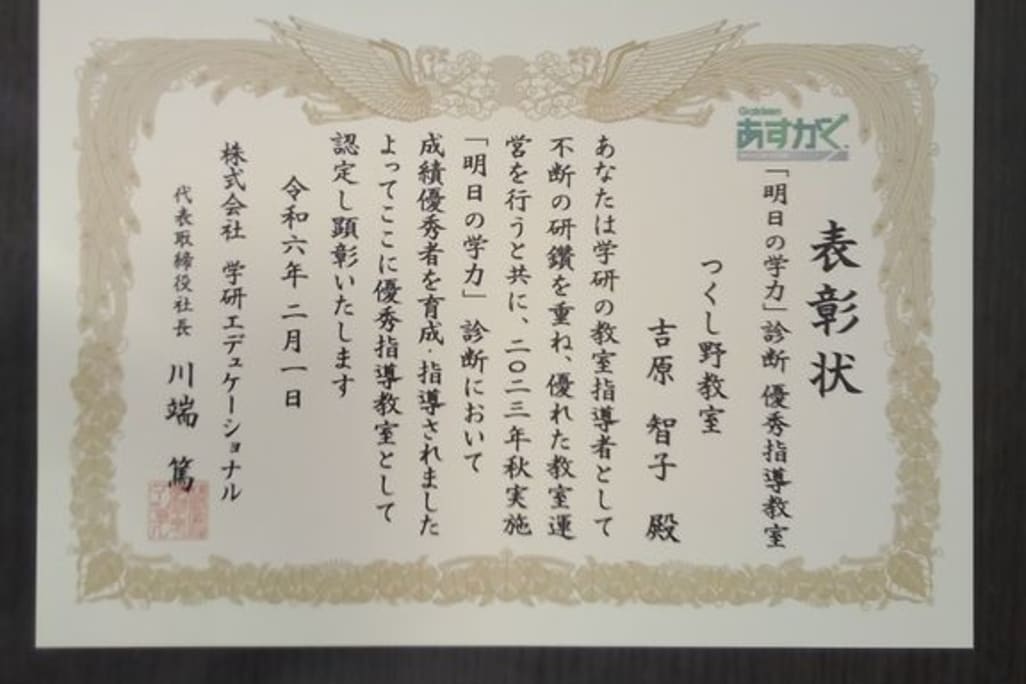 表彰状
Gakken
あすがく
「明日の学力」診断 優秀指導教室
つくし野教室
吉原 智子 殿
あなたは学研の教室指導者として
不断の研鑽を重ね、優れた教室運
営を行うと共に、二〇二三年秋実施
「明日の学力」診断において
成績優秀者を育成・指導されました
よってここに優秀指導教室として
認定し顕彰いたします
令和六年 二月一日
株式会社 学研エデュケーショナル
代表取締役社長 川端 篤